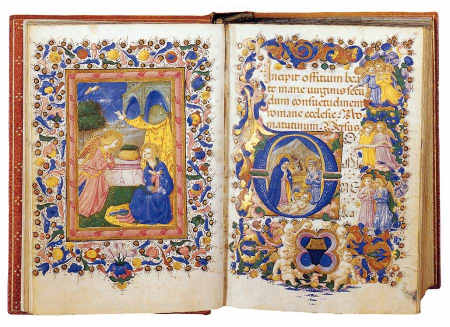 Incipit offitium bea
te marie virginis secu
dum consuetudinem
romane ecclesie: Ad
matutinum: Versus